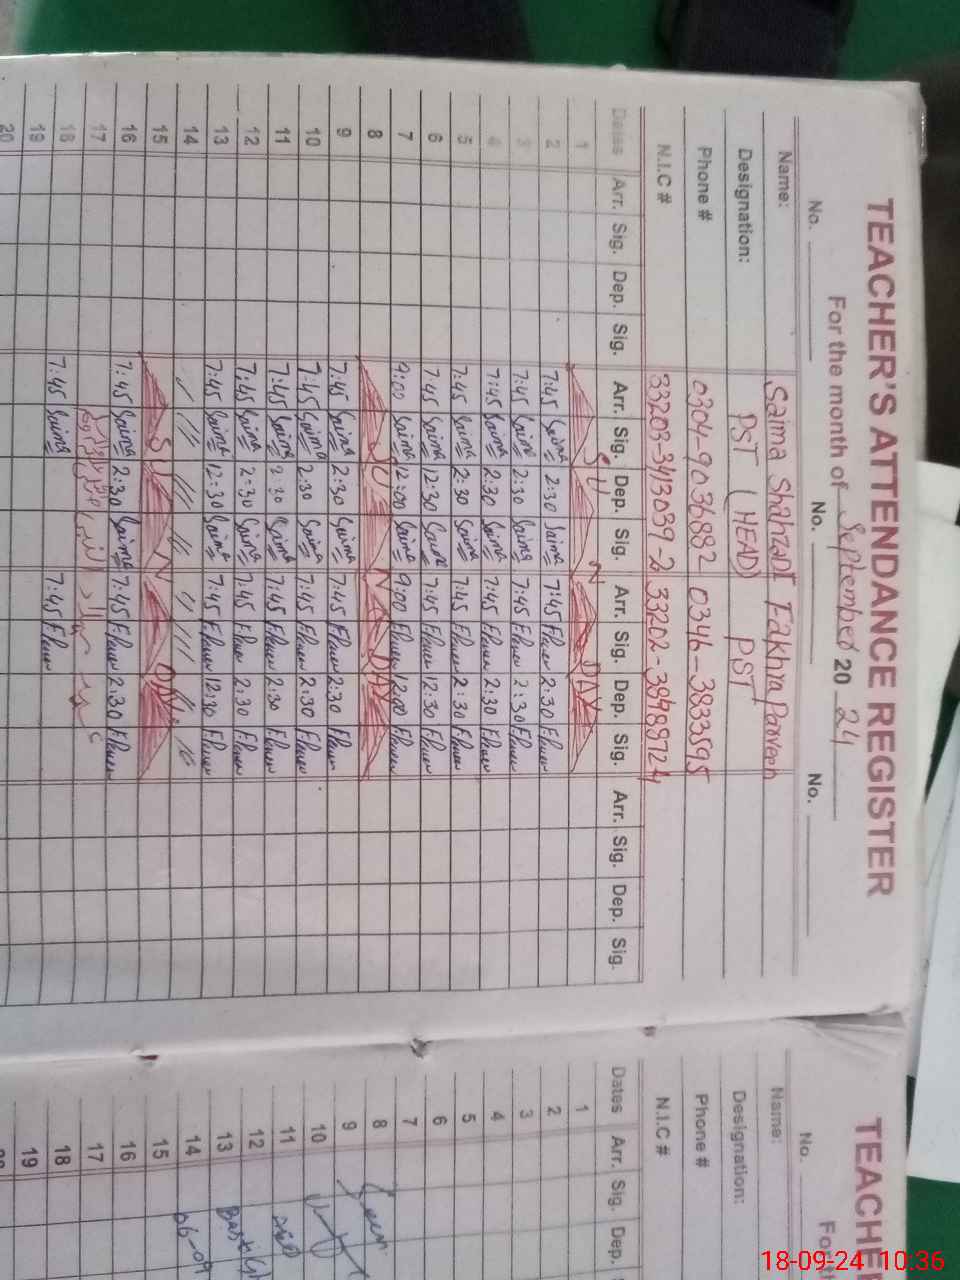 TEACHER'S ATTENDANCE REGISTER
For the month of September 2024
No. No. No.
Name: Saima Shahzadi Fakhra Parveen
Designation: PST (HEAD) PST
Phone # 0304-9036882 0346-3833595
N.I.C # 33203-3413039-2 33202-38988724
Dates Arr. Sig. Dep. Sig. Arr. Sig. Dep. Sig. Arr. Sig. Dep. Sig. Arr. Sig. Dep. Sig.
1 SUNDAY
2 7:45 Saima 2:30 Saima 7:45 2:30
3 7:45 Saima 2:30 Saima 7:45 2:30
4 7:45 Saima 2:30 Saima 7:45 2:30
5 7:45 Saima 2:30 Saima 7:45 2:30
6 7:45 Saima 12:30 Saima 7:45 12:30
7 9:00 Saima 12:00 Saima 9:00 12:00
8 SUNADAY
9 7:45 Saima 2:30 Saima 7:45 2:30
10 7:45 Saima 2:30 Saima 7:45 2:30
11 7:45 Saima 2:30 Saima 7:45 2:30
12 7:45 Saima 2:30 Saima 7:45 2:30
13 7:45 Saima 12:30 Saima 7:45 12:30
14
15 SUNDAY
16 7:45 Saima 2:30 Saima 7:45 2:30
17
18 7:45 Saima 7:45
19
20
TEACHE
For th
No.
Name:
Designation:
Phone #
N.I.C #
Dates Arr. Sig. Dep.
1
2
3
4
5
6
7
8
9
10
11
12
13
14 06-09
15
16
17
18
19
18-09-24 10:36